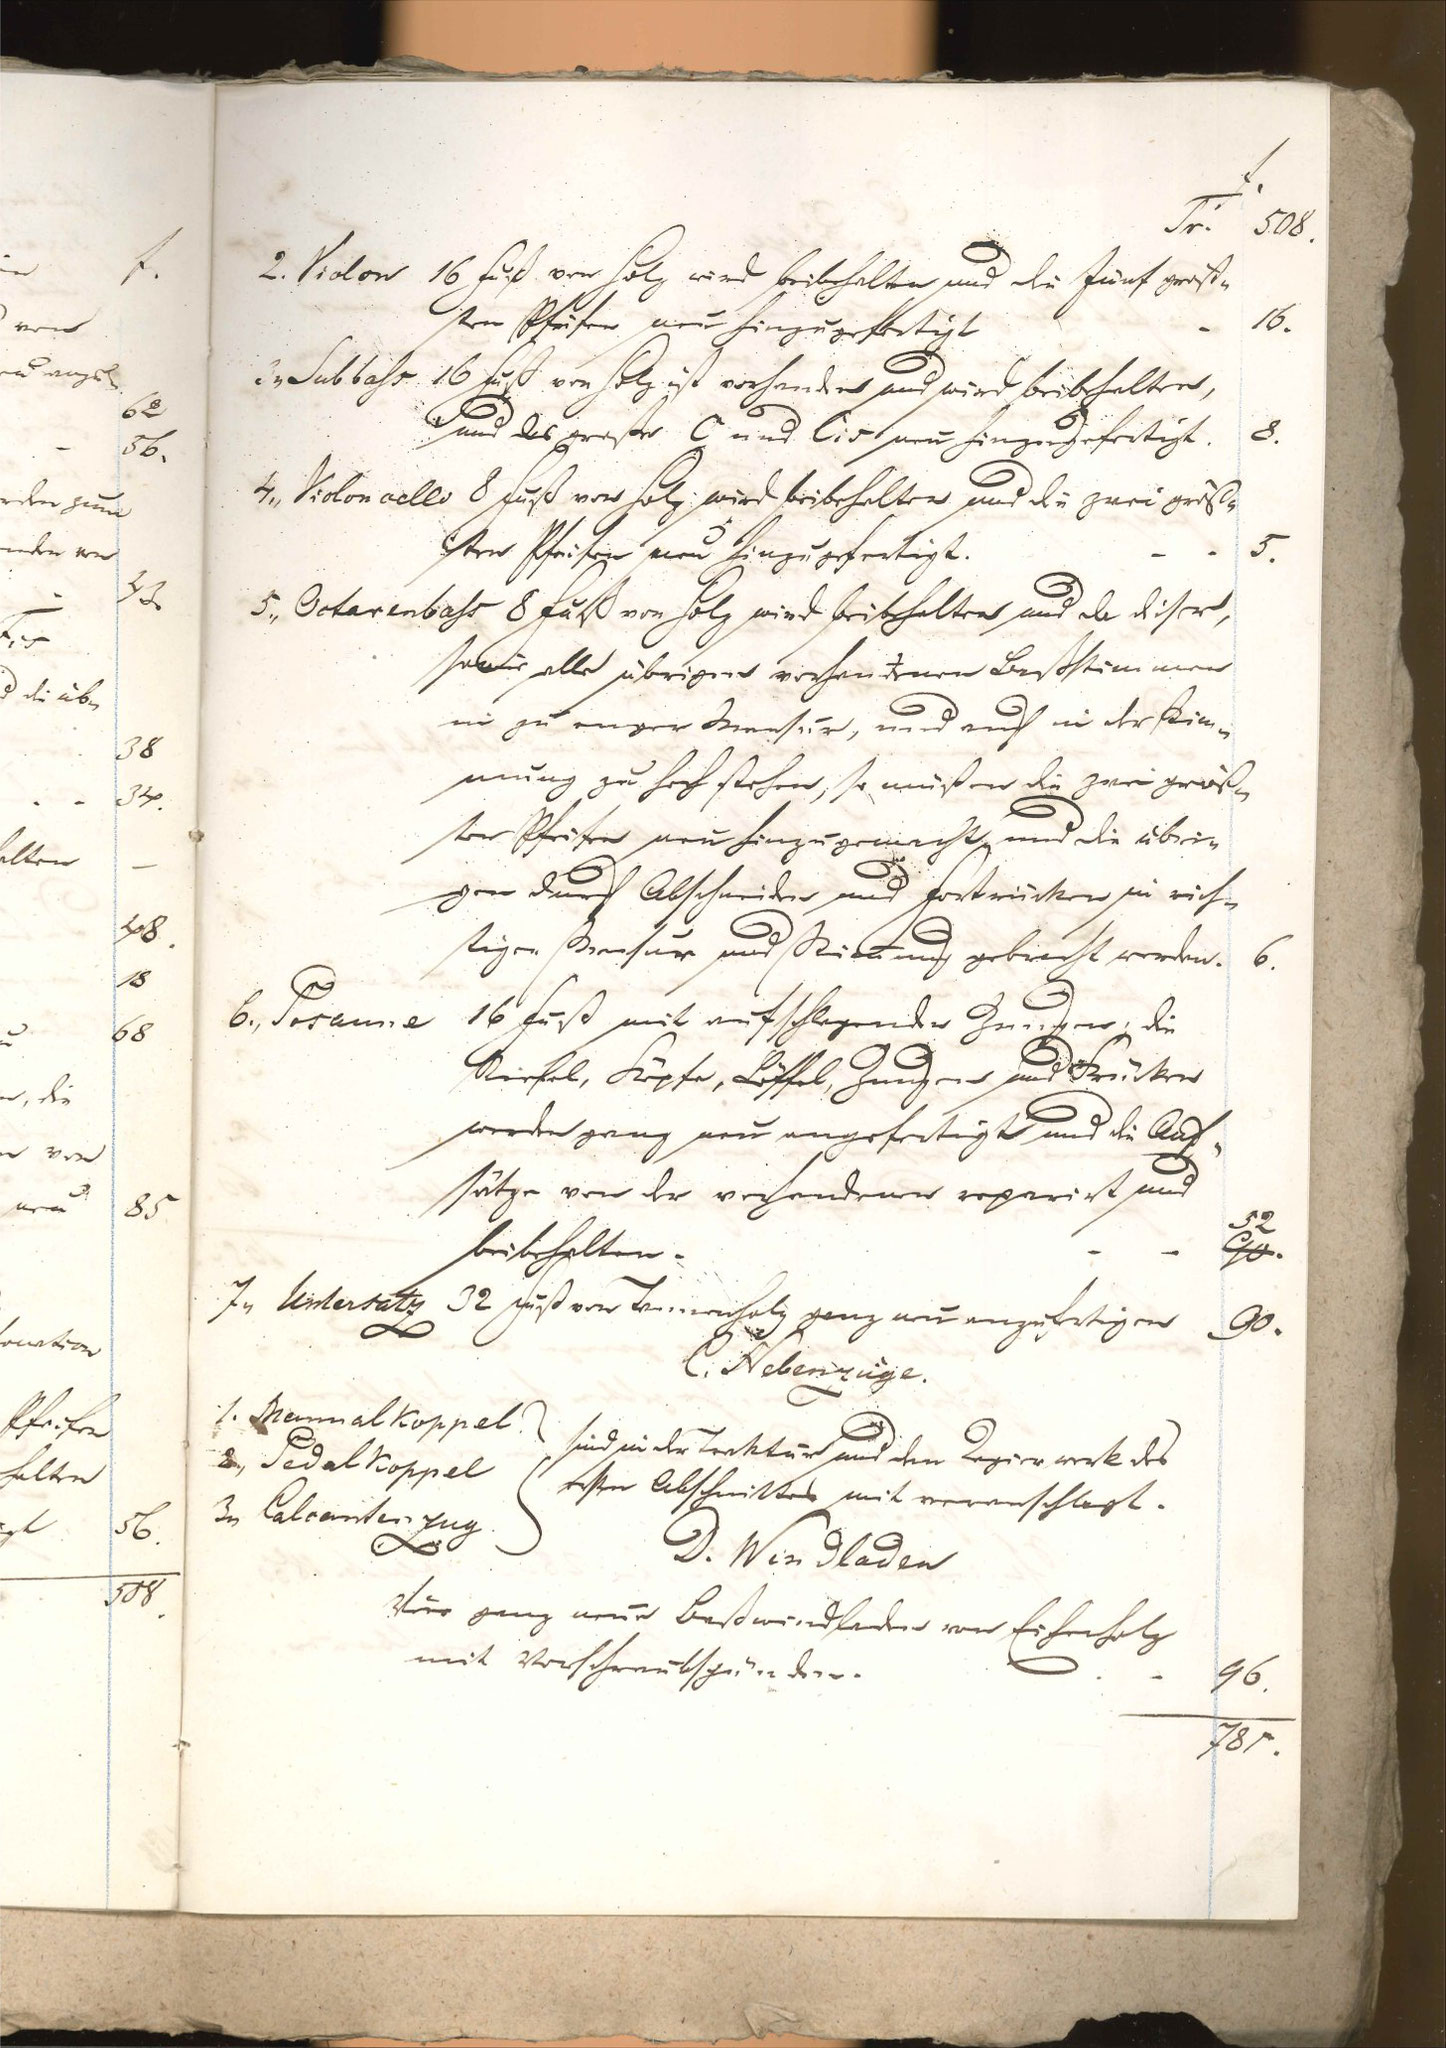 f.
von
neu angef.
62
56.
werden zum
42
die üb-
38
34.
halten —
48.
18
68
die
von
neu 85
Pfeifen
halten
56.
508.
f.
Tr. 508.
2. Violon 16 Fuß von Holz wird beibehalten und die fünf größ-
ten Pfeifen neu hinzugefertigt - 16.
3.„ Subbaß 16 Fuß von Holz ist vorhanden und wird beibehalten,
und das große C und Cis neu hinzugefertigt. 8.
4.„ Violoncello 8 Fuß von Holz wird beibehalten und die zwei größ-
ten Pfeifen neu hinzugefertigt. - - 5.
5.„ Octavenbaß 8 Fuß von Holz wird beibehalten und da dieser,
sowie alle übrigen vorhandenen Baßstimmen
in zu enger Mensur, und auch in der Stim-
mung zu hoch stehen, so müßen die zwei größ-
ten Pfeifen neu hinzugemacht, und die übri-
gen durch Abschneiden und Fortrücken in rich-
tige Mensur und Stimmung gebracht werden. 6.
6.„ Posaune 16 Fuß mit aufschlagenden Zungen, die
Stiefel, Köpfe, Löffel, Zungen und Krücken
werden ganz neu angefertigt und die Auf-
sätze von der vorhandenen reparirt und
52
beibehalten. - -
7.„ Untersatz 32 Fuß von Tannenholz ganz neu anzufertigen 90.
C. Nebenzüge.
1. Manualkoppel
2.„ Pedalkoppel
3.„ Calcantenzug
sind in der Traktur und dem Regierwerk des
ersten Abschnittes mit veranschlagt.
D. Windladen
Vier ganz neue Baßwindladen von Eichenholz
mit Vorschraubspünden. - - 96.
781.